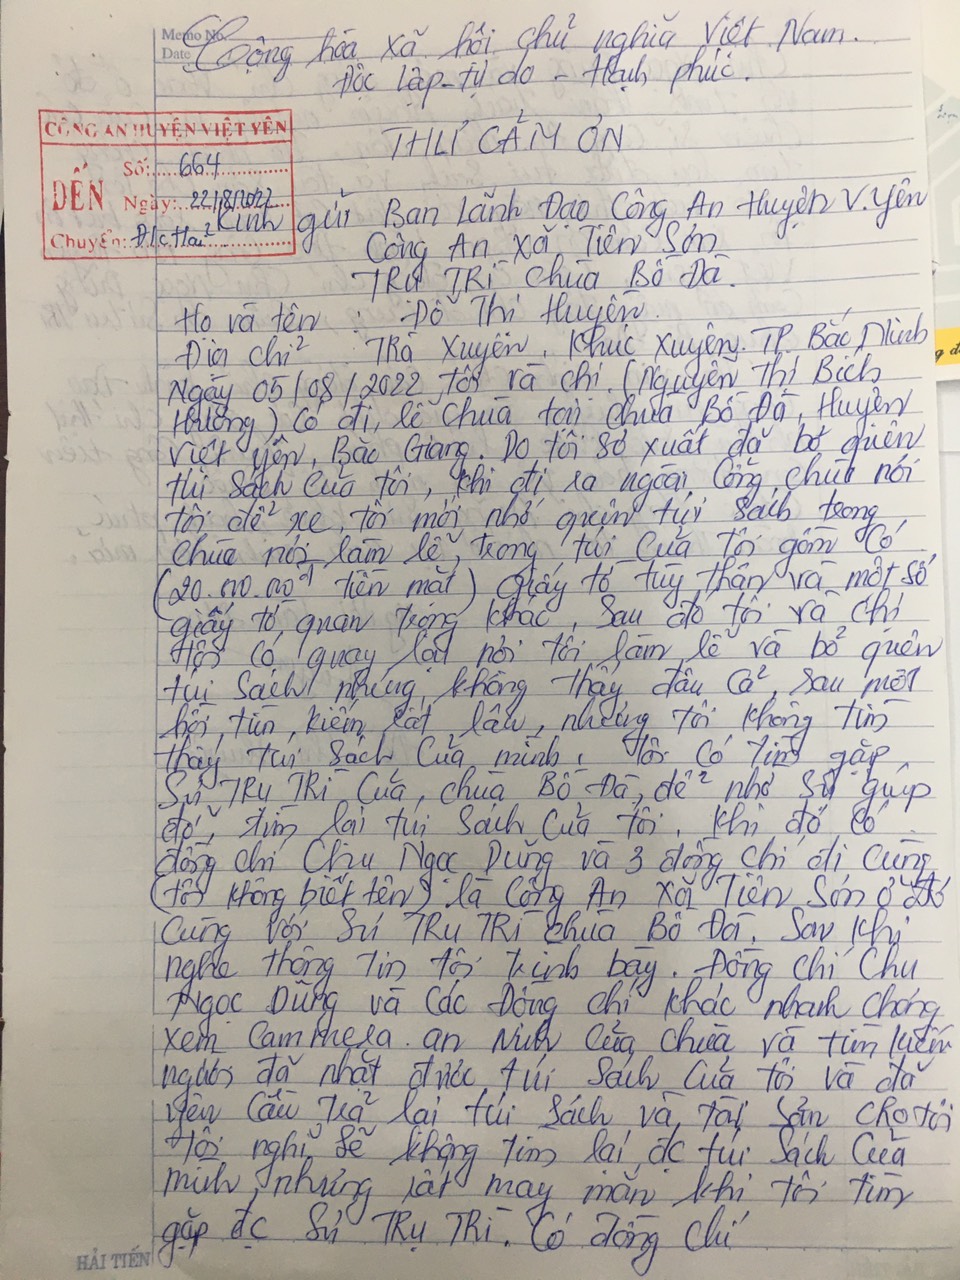 Memo No.
Date
Cộng hòa xã hội chủ nghĩa Việt Nam.
Độc lập - tự do - Hạnh phúc.
CÔNG AN HUYỆN VIỆT YÊN
ĐẾN
Số: 664
Ngày: 22/8/2022
Chuyển: Đ/c Hải
THƯ CẢM ƠN
Kính gửi Ban Lãnh Đạo Công An Huyện V.Yên
Công An xã Tiên Sơn
TRỤ TRÌ chùa Bổ Đà.
Họ và tên : Đỗ Thị Huyên.
Địa chỉ Trà Xuyên, Khúc Xuyên. TP. Bắc Ninh
Ngày 05/08/2022 tôi và chị (Nguyễn Thị Bích
Hường) Có đi lễ chùa tại chùa Bổ Đà, Huyện
Việt Yên, Bắc Giang. Do tôi sơ xuất đã bỏ quên
túi sách của tôi, khi đi ra ngoài Cổng chùa nơi
tôi để xe, tôi mới nhớ quên túi sách trong
chùa nơi làm lễ, trong túi của tôi gồm có
(20.000.000đ tiền mặt) giấy tờ tùy thân và một số
giấy tờ quan trọng khác, Sau đó tôi và chị
tôi có quay lại nơi tôi làm lễ và bỏ quên
túi sách nhưng không thấy đâu cả, sau một
hồi tìm kiếm rất lâu, nhưng tôi không tìm
thấy túi sách của mình. Tôi có tìm gặp
Sư TRỤ TRÌ của chùa Bổ Đà, để nhờ sư giúp
đỡ, tìm lại túi sách của tôi. Khi đó có
đồng chí Chu Ngọc Dũng và 3 đồng chí đi cùng
(tôi không biết tên) là Công An xã Tiên Sơn ở đó
cùng với Sư TRỤ TRÌ chùa Bổ Đà. Sau khi
nghe thông tin tôi trình bày. Đồng chí Chu
Ngọc Dũng và các Đồng chí khác nhanh chóng
xem Cammera an ninh của chùa và tìm kiếm
người đã nhặt được túi sách của tôi và đã
yêu cầu trả lại túi sách và tài sản cho tôi
Tôi nghĩ sẽ không tìm lại đc túi sách của
mình, nhưng rất may mắn khi tôi tìm
gặp đc Sư TRỤ TRÌ. Có đồng chí
HẢI TIẾN